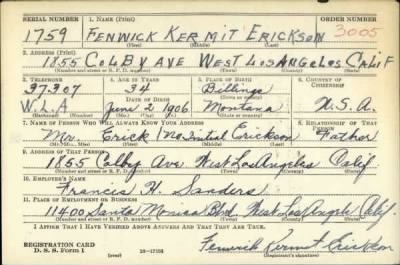 SERIAL NUMBER 1. NAME (Print) ORDER NUMBER
1759 FENWICK KERMIT ERICKSON 3005
(First) (Middle) (Last)
2. ADDRESS (Print)
1855 COLBY AVE WEST LOS ANGELOS CALIF
(Number and street or R. F. D. number) (Town) (County) (State)
3. TELEPHONE 4. AGE IN YEARS 5. PLACE OF BIRTH 6. COUNTRY OF CITIZENSHIP
37307 34 Billings
DATE OF BIRTH (Town or county)
W.L.A June 2 1906 Montana U.S.A.
(Exchange) (Number) (Mo.) (Day) (Yr.) (State or country)
7. NAME OF PERSON WHO WILL ALWAYS KNOW YOUR ADDRESS 8. RELATIONSHIP OF THAT PERSON
Mr. Erick (No Initial) Erickson Father
(Mr., Mrs., Miss) (First) (Middle) (Last)
9. ADDRESS OF THAT PERSON
1855 Colby Ave West Los Angeles Calif.
(Number and street or R. F. D. number) (Town) (County) (State)
10. EMPLOYER'S NAME
Francis H. Sanders
11. PLACE OF EMPLOYMENT OR BUSINESS
11400 Santa Monica Blvd, West Los Angeles Calif.
(Number and street or R. F. D. number) (Town) (County) (State)
I AFFIRM THAT I HAVE VERIFIED ABOVE ANSWERS AND THAT THEY ARE TRUE.
REGISTRATION CARD
D. S. S. Form 1 (over) Fenwick Kermit Erickson